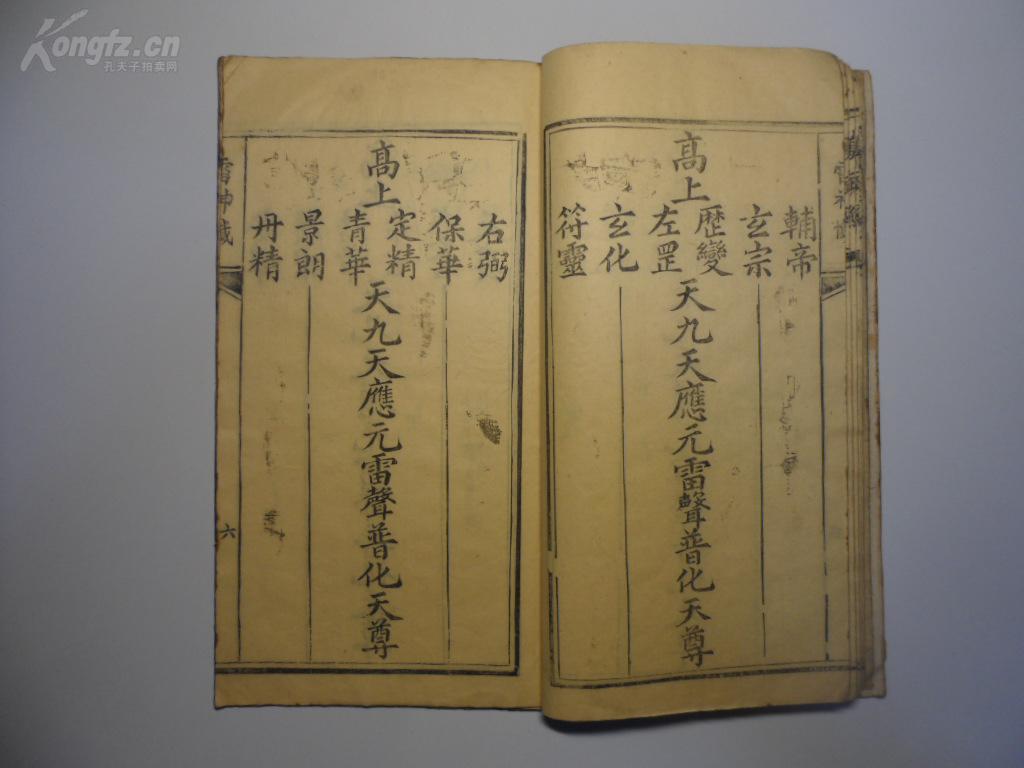 Kongfz.cn
孔夫子拍卖网
高上
輔帝
玄宗
歷變
左罡
玄化
符靈
天九天應元雷聲普化天尊
高上
右弼
保華
定精
青華
景朗
丹精
天九天應元雷聲普化天尊
六